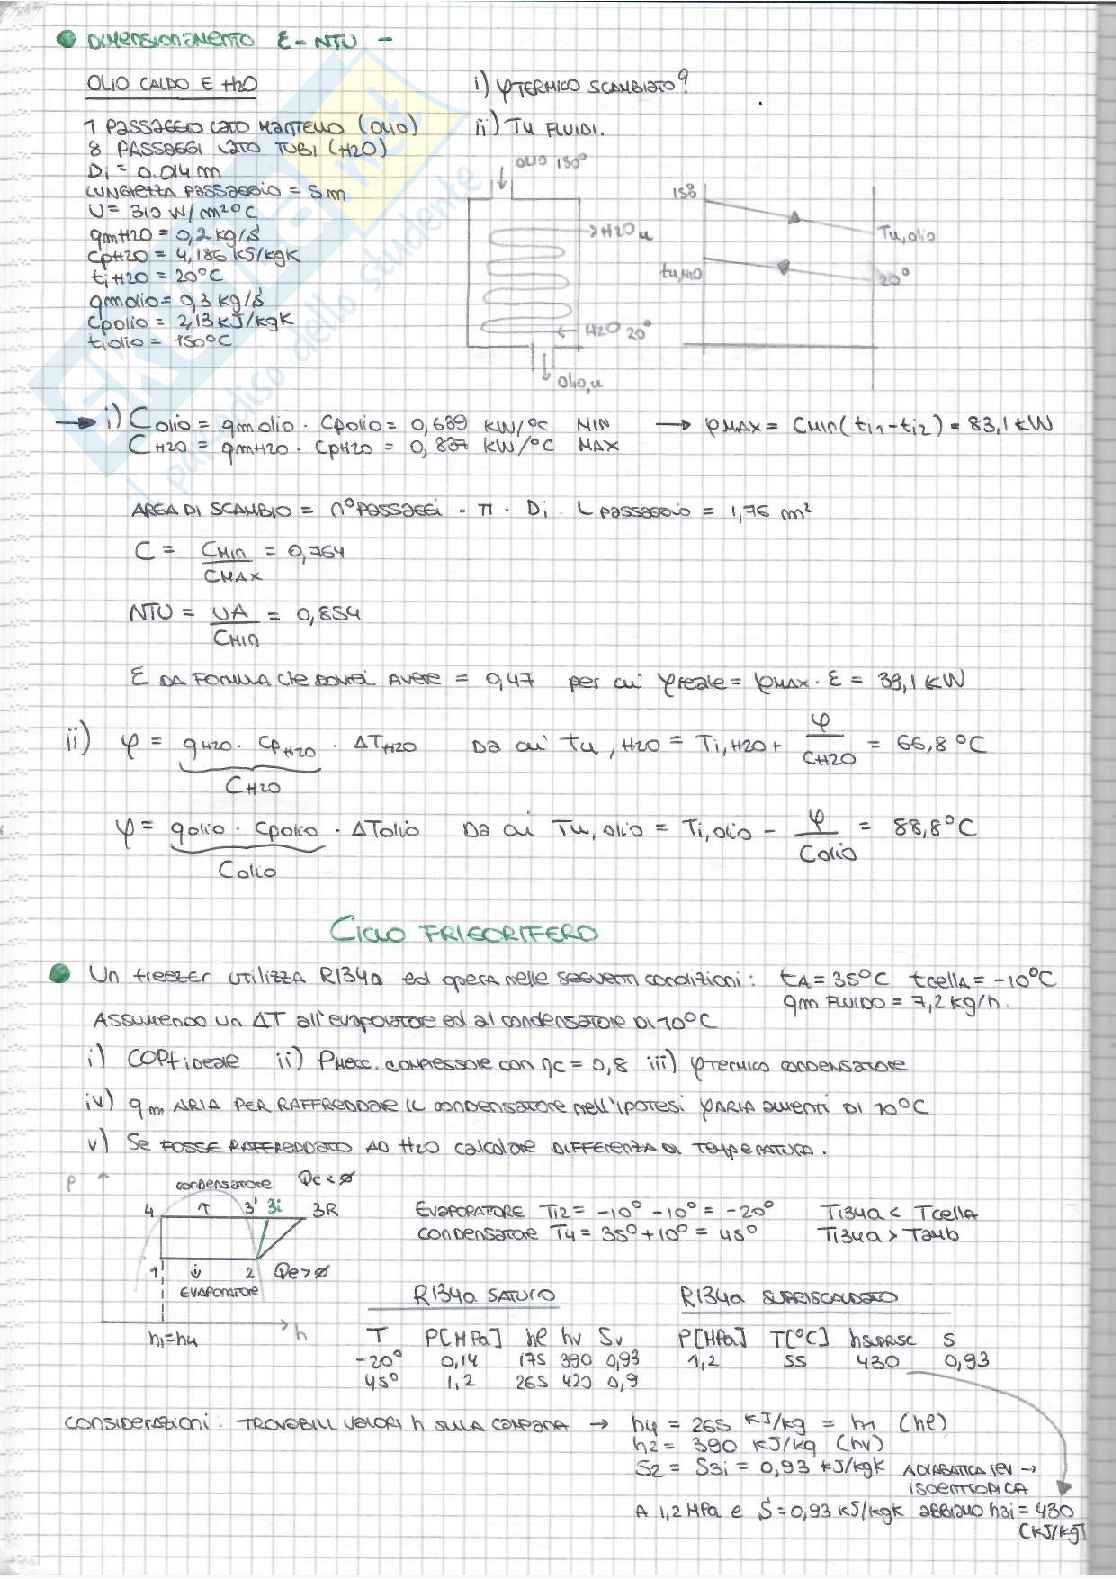 DIMENSIONAMENTO E-NTU -
OLIO CALDO E H2O
i) φTERMICO SCAMBIATO?
1 PASSAGGIO LATO MANTELLO (OLIO)
ii) Tu FLUIDI.
8 PASSAGGI LATO TUBI (H2O)
Di = 0.014 m
LUNGHEZZA PASSAGGIO = 5m
U = 310 W/m²°C
qmH2O = 0,2 kg/s
CpH2O = 4,186 KJ/kgK
tiH2O = 20°C
qmolio = 0,3 kg/s
Cpolio = 2,13 kJ/kgK
tiolio = 150°C
OLIO 150°
H2O u
H2O 20°
Olio,u
158
Tu,olio
tu,H2O
20°
i) Colio = qmolio · Cpolio = 0,639 KW/°C MIN → φMAX = CMIN(ti1-ti2) = 83,1 KW
CH2O = qmH2O · CpH2O = 0,837 KW/°C MAX
AREA DI SCAMBIO = n°PASSAGGI · π · Di · L PASSAGGIO = 1,76 m²
C = CMIN/CMAX = 0,764
NTU = UA/CMIN = 0,854
E DA FORMULA CHE DOVREI AVERE = 0,47 per cui φreale = φMAX · E = 39,1 KW
ii) φ = qH2O · CpH2O · ΔTH2O Da cui tu,H2O = Ti,H2O + φ/CH2O = 66,8°C
CH2O
φ = qolio · Cpolio · ΔTolio Da cui Tu,olio = Ti,olio - φ/Colio = 88,8°C
Colio
CICLO FRIGORIFERO
Un freezer utilizza R134a ed opera nelle seguenti condizioni: tA = 35°C tcella = -10°C
qm FLUIDO = 7,2 kg/h.
Assumendo un ΔT all'evaporatore ed al condensatore di 10°C
i) COPf ideale ii) Pmecc. compressore con ηc = 0,8 iii) φtermico condensatore
iv) qm ARIA PER RAFFREDDARE IL CONDENSATORE nell'ipotesi φARIA aumenti di 10°C
v) Se FOSSE RAFFREDDATO AD H2O calcolare DIFFERENZA DI TEMPERATURA.
P
condensatore Qc<ø
4 3' 3i 3R
1 2 Qe>ø
EVAPORATORE
h1=h4
h
EVAPORATORE T12 = -10° -10° = -20° T134a < Tcella
CONDENSATORE T4 = 35° + 10° = 45° T134a > Tamb
R134a SATURO R134a SURRISCALDATO
T P[MPa] hl hv Sv P[MPa] T[°C] hsurrisc S
-20° 0,14 175 390 0,93 1,2 55 430 0,93
45° 1,2 265 420 0,9
CONSIDERAZIONI: TROVABILI VALORI h SULLA CAMPANA → h4 = 265 KJ/kg = h1 (hl)
h2 = 390 KJ/kg (hv)
S2 = S3i = 0,93 KJ/kgK ADIABATICA REV →
ISOENTROPICA
A 1,2 MPa e S = 0,93 KJ/kgK abbiamo h3i = 430
(KJ/kg)